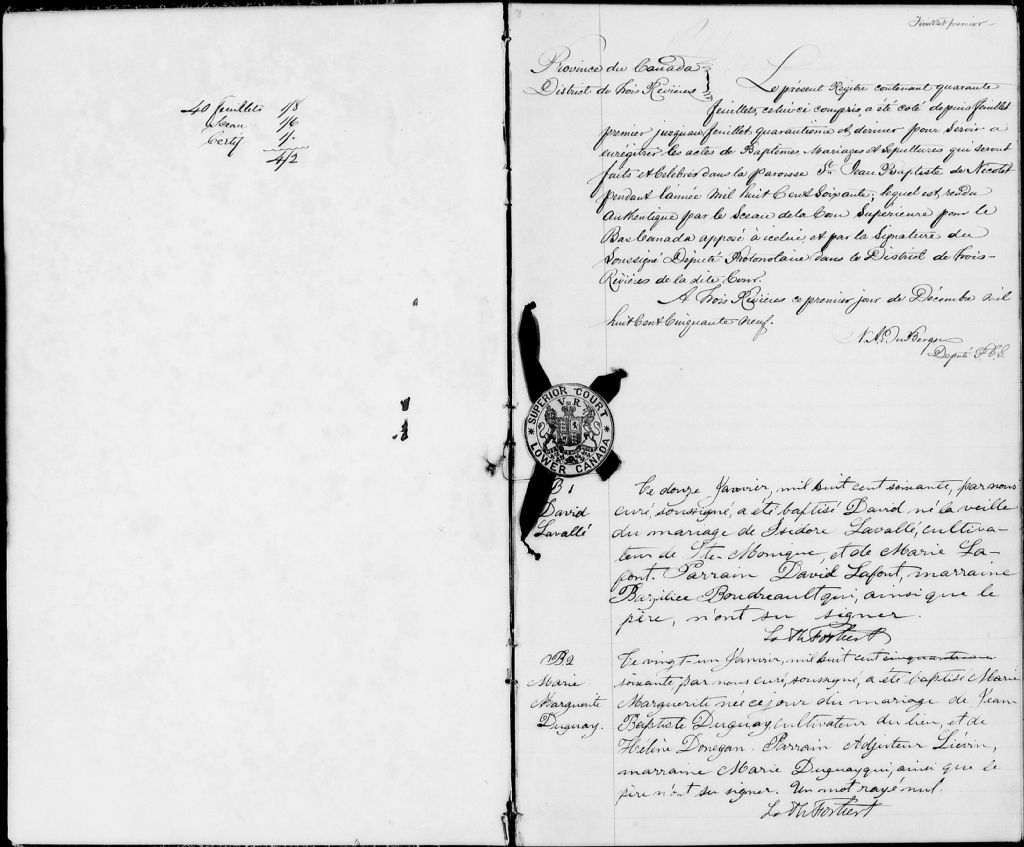 40 feuillets 1/8
Sceau 1/6
Certif 1/-
4/2
Feuillet premier
Province du Canada
District de Trois Rivières
Le présent Régistre contenant quarante
feuillets, celui ci compris, a été coté depuis feuillet
premier jusqu'au feuillet quarantième et dernier pour servir a
enrégistrer les actes de Baptêmes, Mariages et Sépultures qui seront
faits et célébrés dans la paroisse St. Jean Baptiste de Nicolet
pendant l'année mil huit Cent Soixante; lequel est rendu
Authentique par le Sceau de la Cour Supérieure pour le
Bas Canada apposé à icelui, et par la Signature du
Soussigné Député Protonotaire dans le District de Trois-
Rivières de la dite Cour.
A Trois Rivières ce premier jour de Décembre mil
huit Cent Cinquante neuf.
Député P.C.S.
SUPERIOR COURT
V R
LOWER CANADA
B 1
David
Lavallé
Ce douze Janvier, mil huit cent soixante, par nous
curé, soussigné, a été baptisé David né la veille
du mariage de Isidore Lavallé, cultiva-
teur de Ste. Monique, et de Marie La-
font. Parrain David Lafont, marraine
Bazilice Boudreault qui, ainsi que le
père, n'ont su signer.
Ls Th Fortier Ptr
B 2
Marie
Marguerite
Duguay.
Ce vingt-un Janvier, mil huit cent cinquante
soixante, par nous curé, soussigné, a été baptisé Marie
Marguerite née ce jour du mariage de Jean
Baptiste Duguay cultivateur du lieu, et de
Hélène Donegan. Parrain Adjuteur Liévin,
marraine Marie Duguay qui, ainsi que le
père n'ont su signer. Un mot rayé nul.
Ls Th Fortier Ptr